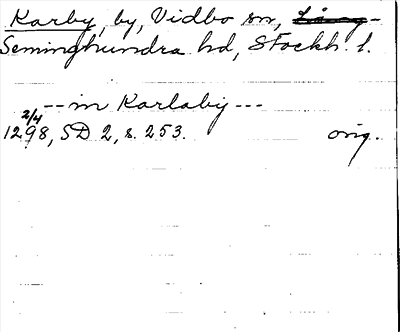 Karby, by, Vidbo sn,
Seminghundra hd, Stockh. l.
--- in Karlaby ---
2/4
1298, SD 2, s. 253. orig.